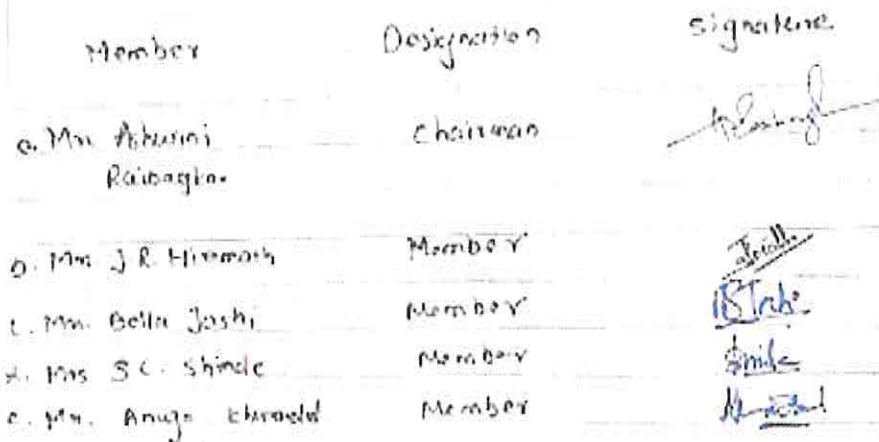 Member Designation Signature
a. Mrs Ashwini Chairman
Raibagkar
b. Mrs J R. Hiremath Member
c. Mrs. Bella Joshi Member
d. Mrs S C. Shinde Member
e. Mrs. Anuja Member